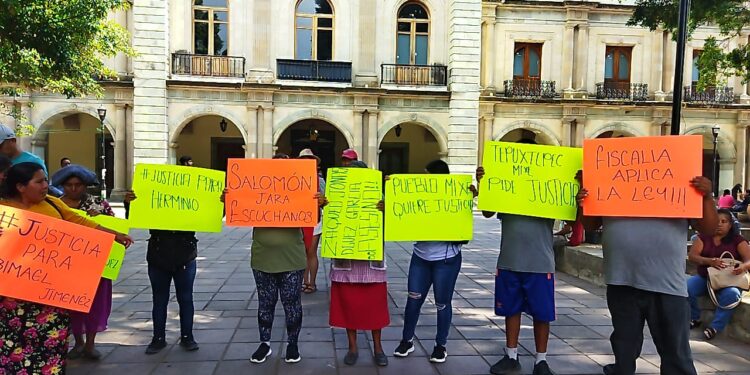 #JUSTICIA
PARA
BIMAEL
JIMÉNEZ
#JUSTICIA PARA
HERMINIO
SALOMÓN
JARA
ESCUCHANOS!
GARCIA
PUEBLO MIXE
QUIERE JUSTICIA
TEPUXTEPEC
PIDE JUSTICIA
FISCALIA
APLICA
LA LEY!!!